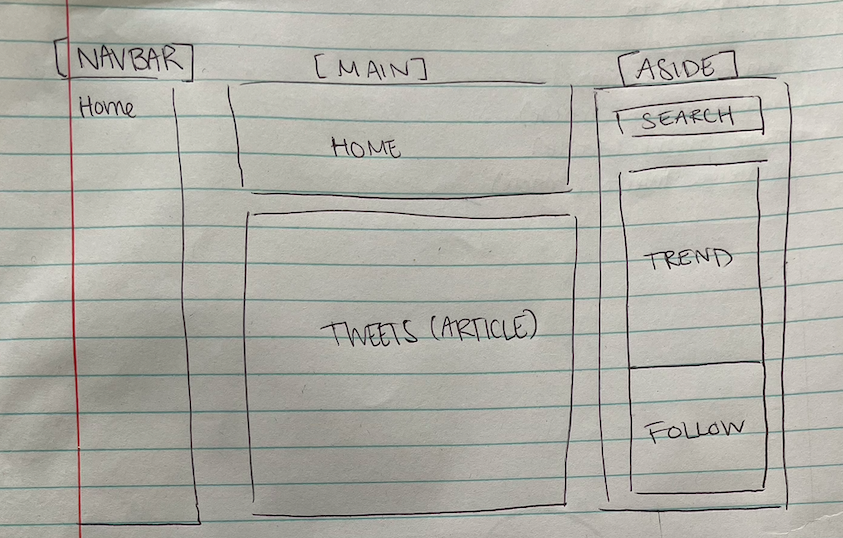 [NAVBAR]
Home
[MAIN]
HOME
TWEETS (ARTICLE)
[ASIDE]
SEARCH
TREND
FOLLOW